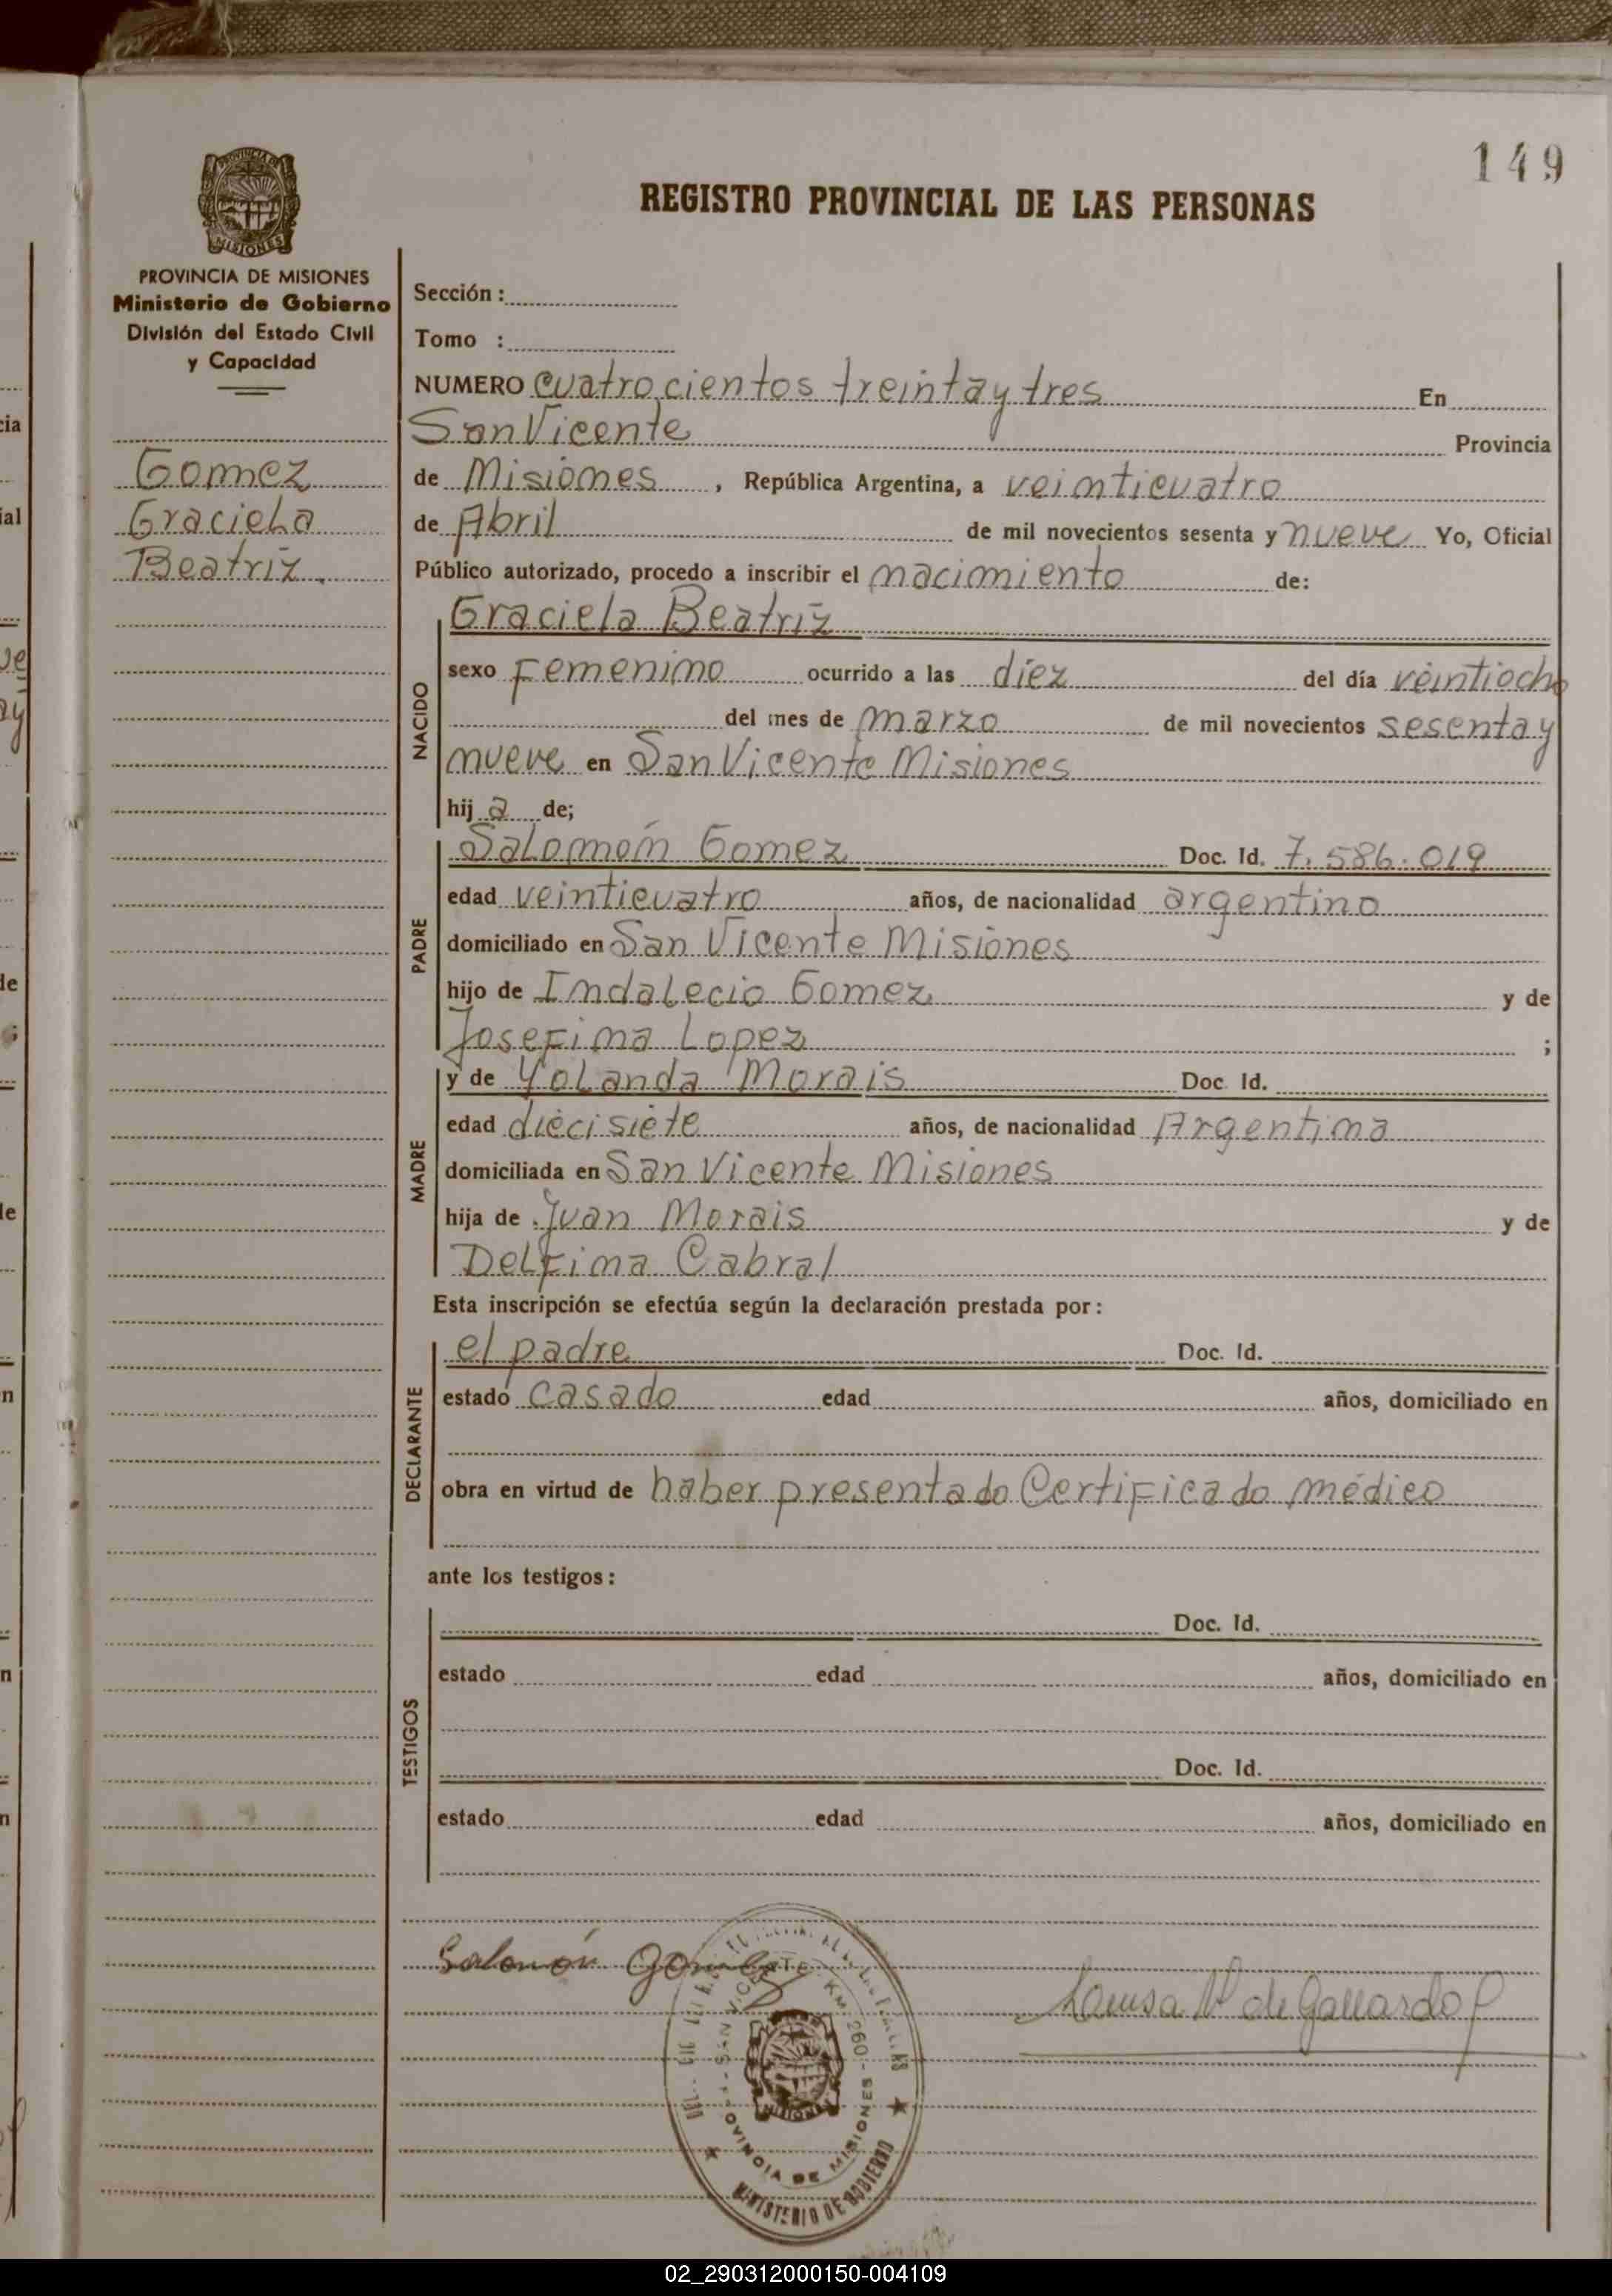 149
REGISTRO PROVINCIAL DE LAS PERSONAS
PROVINCIA DE
MISIONES
PROVINCIA DE MISIONES
Ministerio de Gobierno
División del Estado Civil
y Capacidad
Gomez
Graciela
Beatriz.
Sección :
Tomo :
NUMERO cuatrocientos treinta y tres En
San Vicente Provincia
de Misiones , República Argentina, a veinticuatro
de Abril de mil novecientos sesenta y nueve Yo, Oficial
Público autorizado, procedo a inscribir el nacimiento de:
NACIDO
Graciela Beatriz
sexo Femenino ocurrido a las diez del día veintiocho
del mes de marzo de mil novecientos sesenta y
nueve en San Vicente Misiones
hij a de;
PADRE
Salomón Gomez Doc. Id. 7.586.019
edad veinticuatro años, de nacionalidad argentino
domiciliado en San Vicente Misiones
hijo de Indalecio Gomez y de
Josefina Lopez ;
MADRE
y de Yolanda Morais Doc. Id.
edad diecisiete años, de nacionalidad Argentina
domiciliada en San Vicente Misiones
hija de Juan Morais y de
Delfina Cabral
Esta inscripción se efectúa según la declaración prestada por:
DECLARANTE
el padre Doc. Id.
estado casado edad años, domiciliado en
obra en virtud de haber presentado Certificado médico
ante los testigos:
TESTIGOS
Doc. Id.
estado edad años, domiciliado en
Doc. Id.
estado edad años, domiciliado en
Salomón Gomez
de Gallardo
SAN VICENTE KM 260
PROVINCIA DE MISIONES
MINISTERIO DE GOBIERNO
02_290312000150-004109